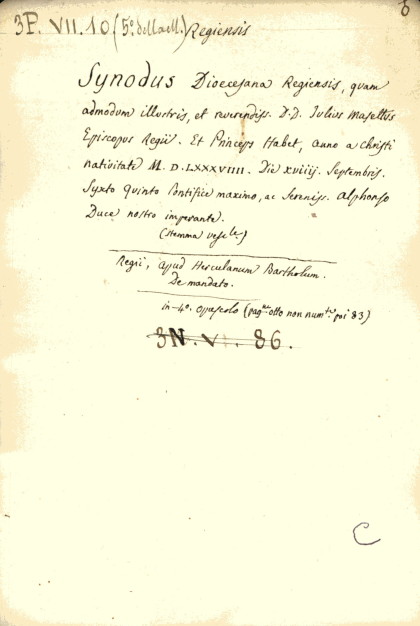 6
3P. VII. 10 (5.° della M.) Regiensis
Synodus Dioecesana Regiensis, quam
admodum illustris, et reverendiss. D. D. Iulius Masettus
Episcopus Regii. Et Princeps Habet, anno a Christi
nativitate M. D. LXXXVIIII. Die xviiij. Septembris.
Syxto Quinto Pontifice maximo, ac Sereniss. Alphonso
Duce nostro imperante.
(stemma vesc.le)
Regii, apud Herculanum Bartholum.
De mandato.
in-4.° opuscolo (pag.ne otto non num.te poi 83)
3N. VI. 86.
C